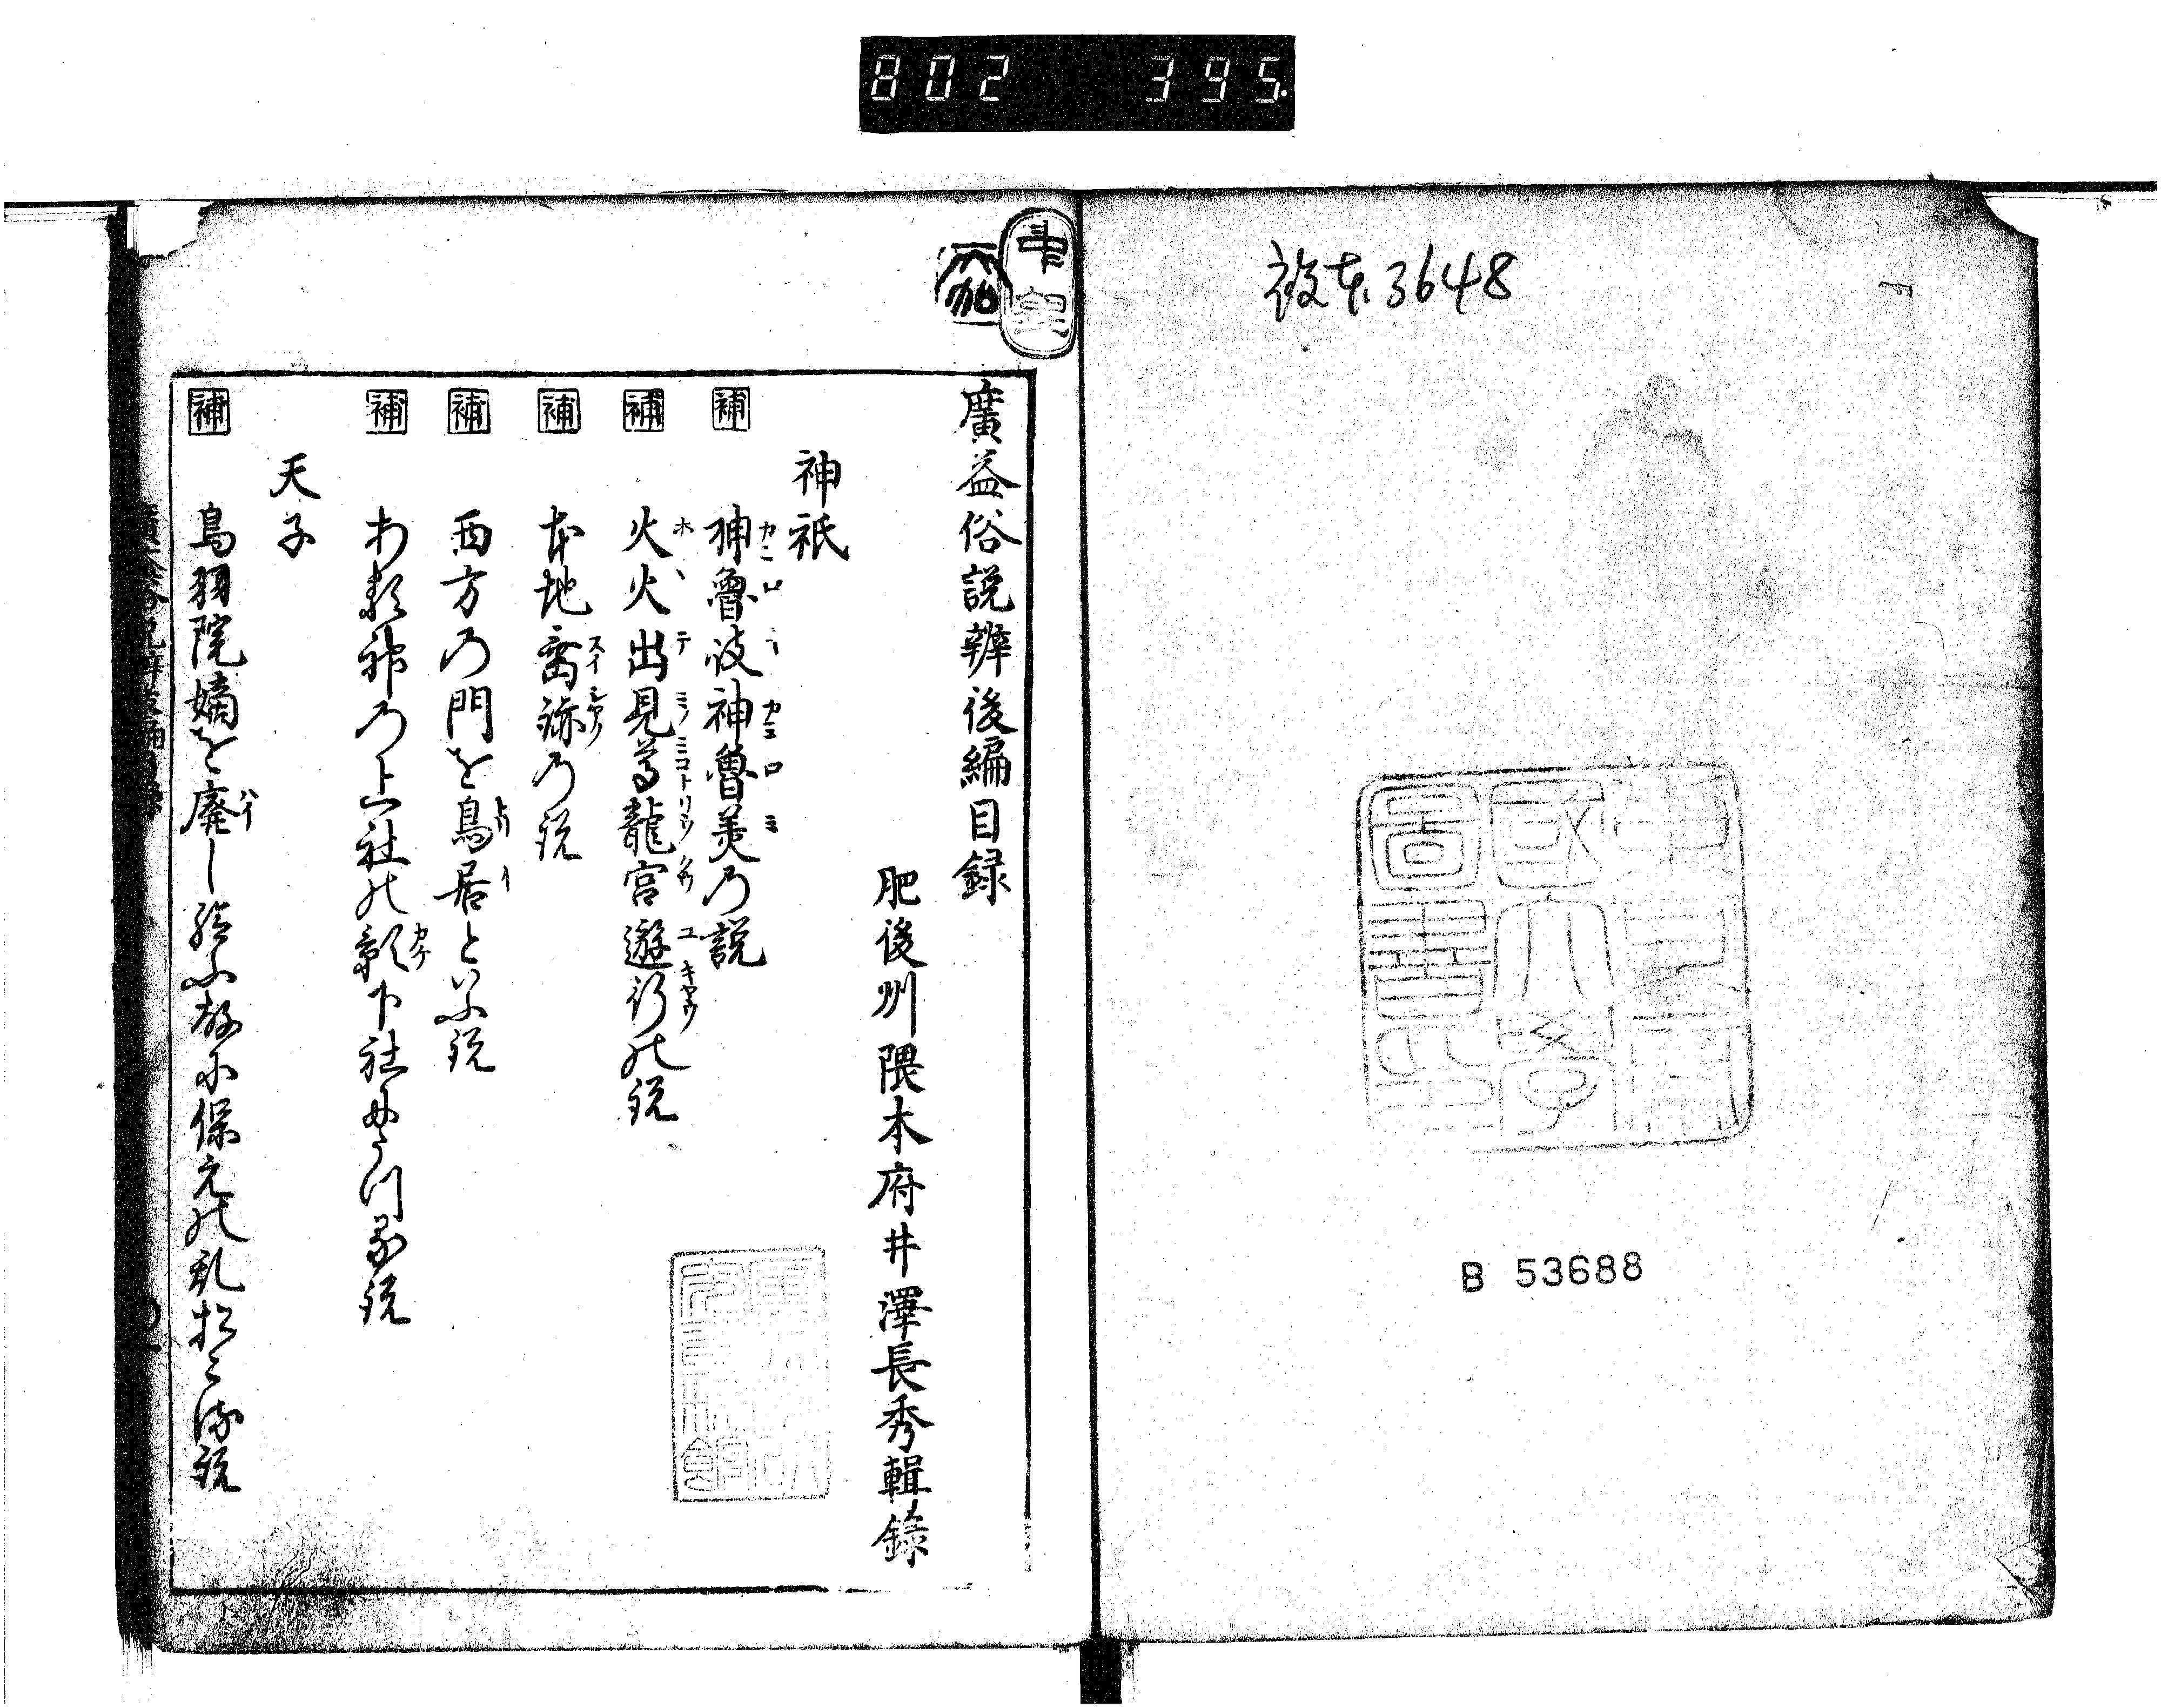 802 395.
複本 3648
B 53688
廣益俗説辨後編目録
肥後州隈本府井澤長秀輯録
神祇
補 神魯岐神魯美の説
補 火火出見尊龍宮遊行の説
補 本地垂跡の説
補 西方の門を鳥居といふ説
補 あまり神の上社の影下社にうつる説
天子
補 鳥羽院嫡を廃し給ふ故に保元の乱おこる説